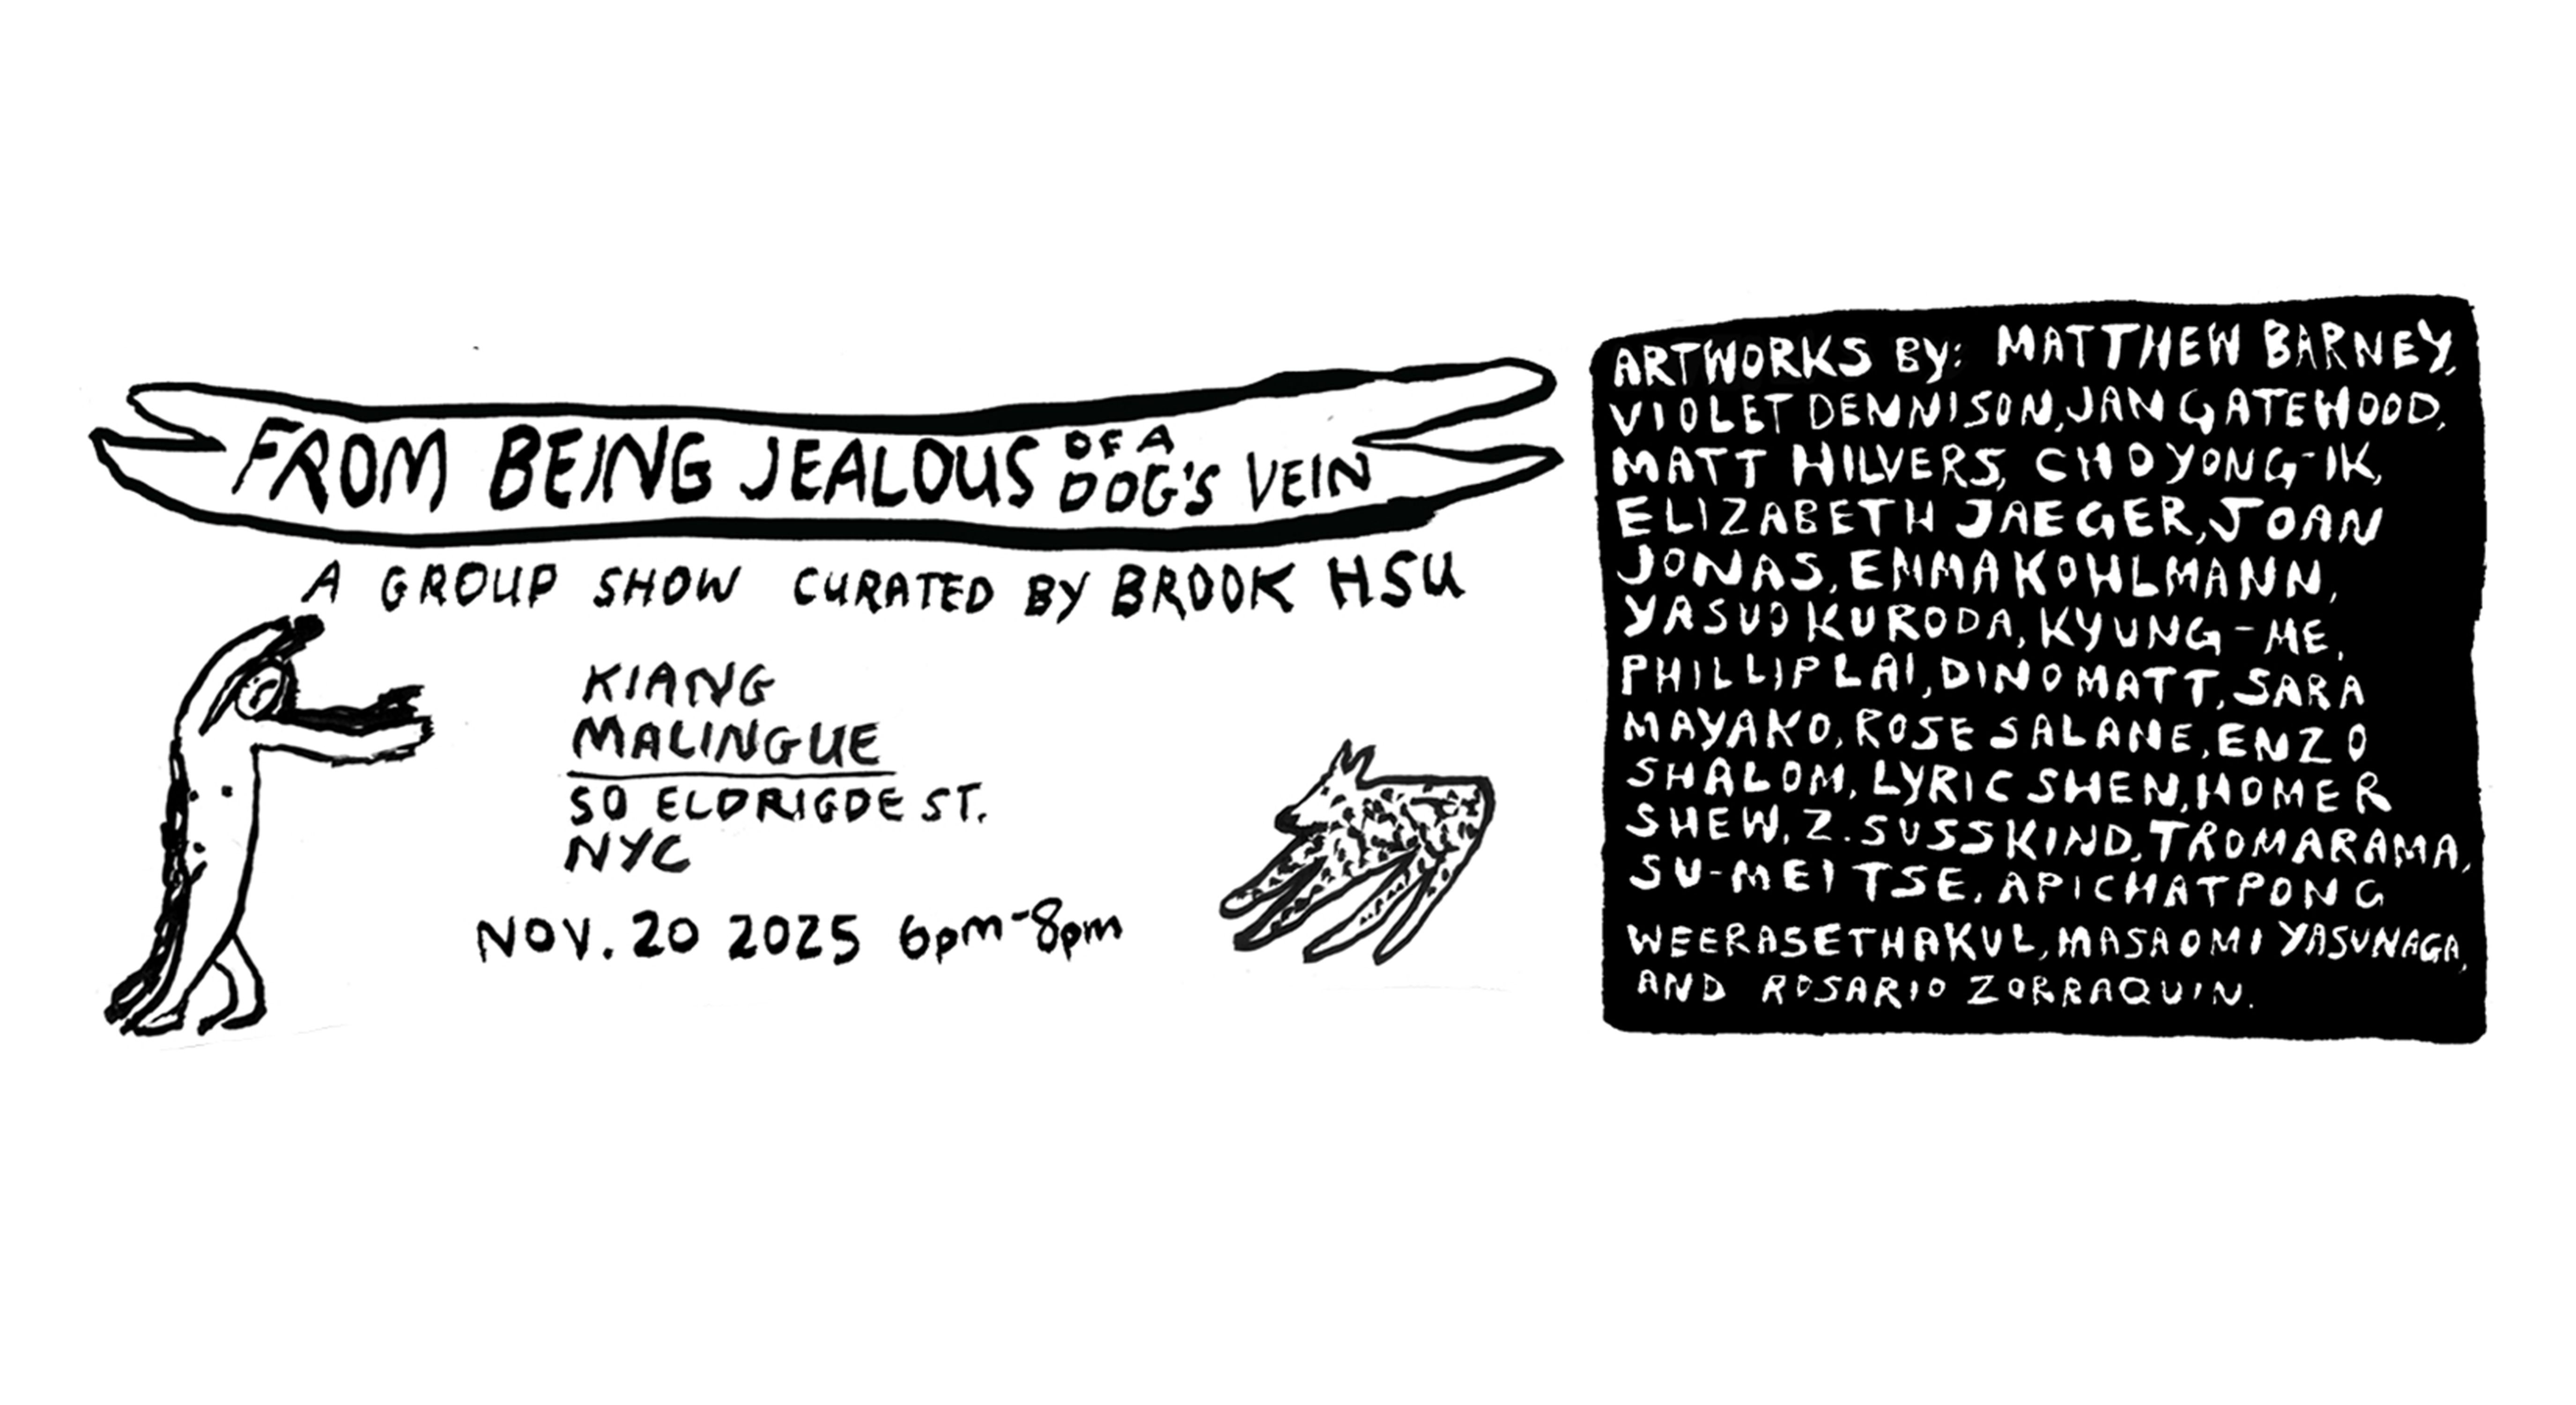 FROM BEING JEALOUS OF A DOG'S VEIN
A GROUP SHOW CURATED BY BROOK HSU
KIANG
MALINGUE
50 ELDRIGDE ST.
NYC
NOV. 20 2025 6pm-8pm
ARTWORKS BY: MATTHEW BARNEY,
VIOLET DENNISON, JAN GATEWOOD,
MATT HILVERS, CHO YONG-IK,
ELIZABETH JAEGER, JOAN
JONAS, EMMA KOHLMANN,
YASUO KURODA, KYUNG-ME,
PHILLIP LAI, DINO MATT, SARA
MAYAKO, ROSE SALANE, ENZO
SHALOM, LYRIC SHEN, HOMER
SHEW, Z. SUSSKIND, TROMARAMA,
SU-MEI TSE, APICHATPONG
WEERASETHAKUL, MASAOMI YASUNAGA,
AND ROSARIO ZORRAQUIN.